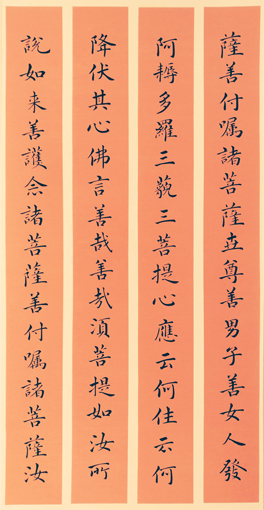 薩善付囑諸菩薩世尊善男子善女人發
阿耨多羅三藐三菩提心應云何住云何
降伏其心佛言善哉善哉須菩提如汝所
說如来善護念諸菩薩善付囑諸菩薩汝